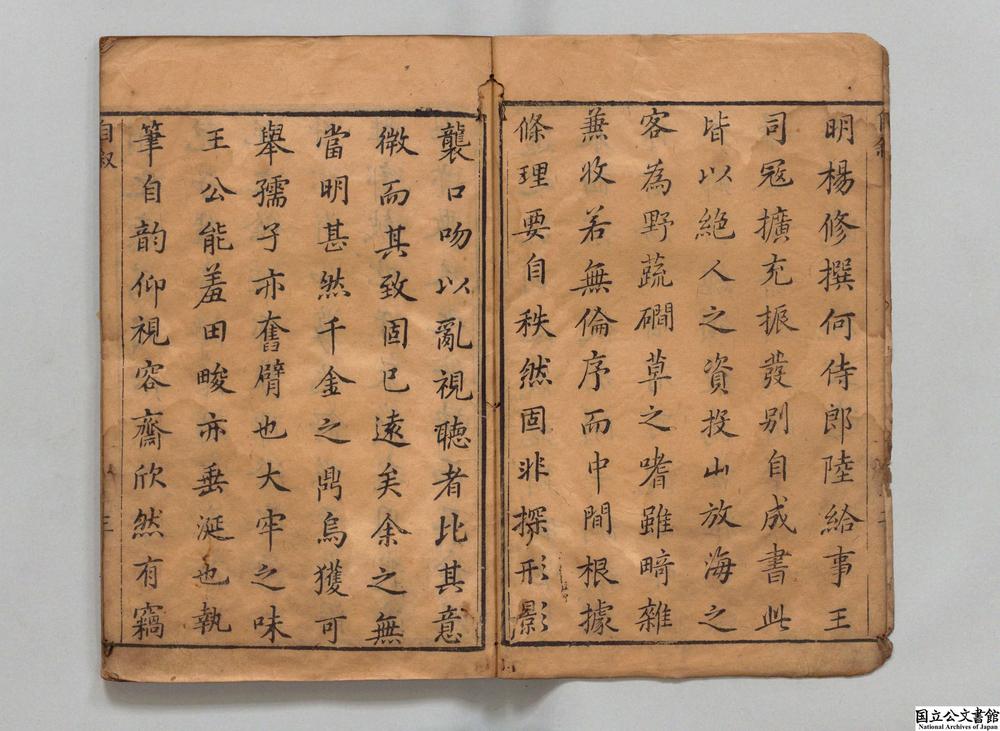 明楊修撰何侍郎陸給事王
司冦擴充振發别自成書此
皆以絶人之資投山放海之
客為野蔬磵草之嗜雖畸雜
蒹收若無倫序而中間根據
條理要自秩然固非探形影
襲口吻以亂視聽者比其意
微而其致固已遠矣余之無
當明甚然千金之鼎烏獲可
舉孺子亦奮臂也大牢之味
王公能羞田畯亦垂涎也執
筆自韵仰視容齋欣然有竊
自叙
三
国立公文書館
National Archives of Japan